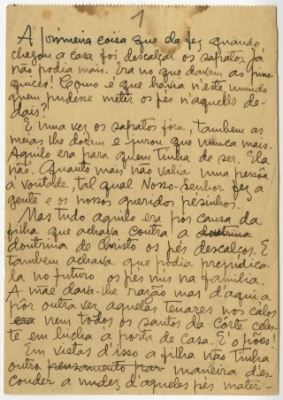 1
A primeira coisa que ela fez quando
chegou a casa foi descalçar os sapatos. Já
não podia mais. Era no que davam as
quices! Como é que havia n'este mundo
quem pudesse meter os pés n'aquelles de-
dais?
E uma vez os sapatos fóra, tambem as
meias lhe doiam e jurou que nunca mais.
Aquilo era para quem tinha de ser. Ela
não. Quanto mais não valia uma pessoa
à vontade, tal qual Nosso-Senhor fez a
gente e os nossos queridos pésinhos.
Mas tudo aquilo era por causa da
filha que achava contra a doutrina
doutrina de Cristo os pés descalços. E
tambem achava que podia prejudica-
la no futuro os pés nús na familia.
A mãe dava-lhe razão mas d'aqui a
pôr outra vez aqueles tenazes nos calos
nem todos os santos da Côrte celes-
te em bicha à porta de casa. E o pões!
Em vistas d'isso a filha não tinha
outra pensamento par maneira d'es-
conder a nudez d'aqueles pés mater-